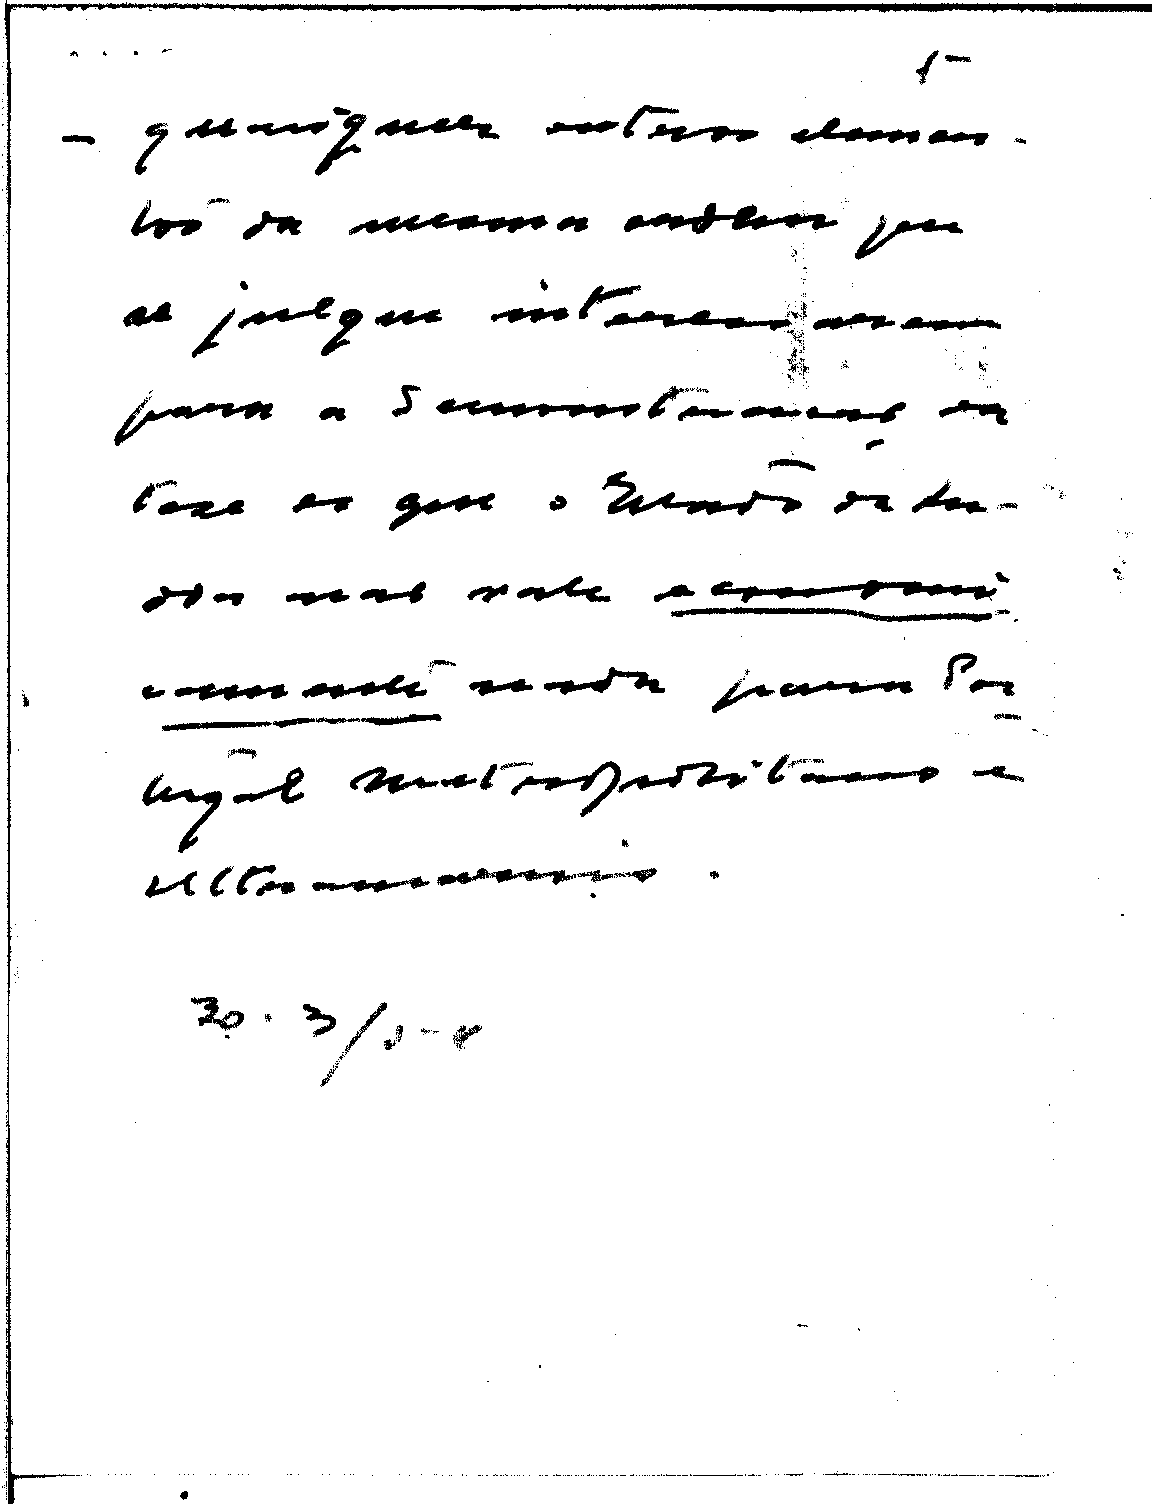 5
- quaisquer outros elemen-
tos da mesma ordem que
se julgue interessarem
para a demonstração da
tese de que o Estado da Ín-
dia não vale economi-
camente nada para Por-
tugal metropolitano e
ultramarino.
30.3/54